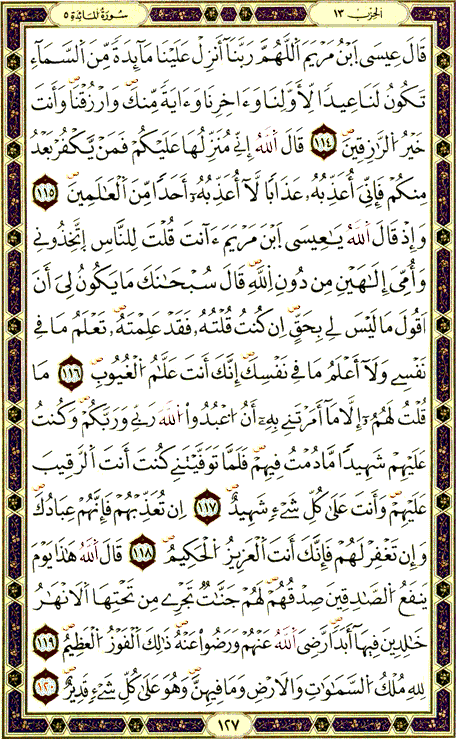 الحزب ١٣
سورة المائدة ٥
قَالَ عِيسَى ابْنُ مَرْيَمَ اللَّهُمَّ رَبَّنَآ أَنزِلْ عَلَيْنَا مَآئِدَةً مِّنَ السَّمَآءِ
تَكُونُ لَنَا عِيدًا لِّأَوَّلِنَا وَءَاخِرِنَا وَءَايَةً مِّنكَ وَارْزُقْنَا وَأَنتَ
خَيْرُ الرَّٰزِقِينَ ١١٤ قَالَ اللَّهُ إِنِّي مُنَزِّلُهَا عَلَيْكُمْ فَمَن يَكْفُرْ بَعْدُ
مِنكُمْ فَإِنِّي أُعَذِّبُهُ عَذَابًا لَّآ أُعَذِّبُهُ أَحَدًا مِّنَ الْعَٰلَمِينَ ١١٥
وَإِذْ قَالَ اللَّهُ يَٰعِيسَى ابْنَ مَرْيَمَ ءَأَنتَ قُلْتَ لِلنَّاسِ اتَّخِذُونِي
وَأُمِّيَ إِلَٰهَيْنِ مِن دُونِ اللَّهِ قَالَ سُبْحَٰنَكَ مَا يَكُونُ لِي أَنْ
أَقُولَ مَا لَيْسَ لِي بِحَقٍّ إِن كُنتُ قُلْتُهُ فَقَدْ عَلِمْتَهُ تَعْلَمُ مَا فِي
نَفْسِي وَلَآ أَعْلَمُ مَا فِي نَفْسِكَ إِنَّكَ أَنتَ عَلَّٰمُ الْغُيُوبِ ١١٦ مَا
قُلْتُ لَهُمُ إِلَّا مَآ أَمَرْتَنِي بِهِ أَنُ اعْبُدُوا اللَّهَ رَبِّي وَرَبَّكُمْ وَكُنتُ
عَلَيْهِمْ شَهِيدًا مَّا دُمْتُ فِيهِمْ فَلَمَّا تَوَفَّيْتَنِي كُنتَ أَنتَ الرَّقِيبَ
عَلَيْهِمْ وَأَنتَ عَلَىٰ كُلِّ شَيْءٍ شَهِيدٌ ١١٧ إِن تُعَذِّبْهُمْ فَإِنَّهُمْ عِبَادُكَ
وَإِن تَغْفِرْ لَهُمْ فَإِنَّكَ أَنتَ الْعَزِيزُ الْحَكِيمُ ١١٨ قَالَ اللَّهُ هَٰذَا يَوْمَ
يَنفَعُ الصَّٰدِقِينَ صِدْقُهُمْ لَهُمْ جَنَّٰتٌ تَجْرِي مِن تَحْتِهَا الْأَنْهَٰرُ
خَٰلِدِينَ فِيهَآ أَبَدًا رَّضِيَ اللَّهُ عَنْهُمْ وَرَضُوا عَنْهُ ذَٰلِكَ الْفَوْزُ الْعَظِيمُ ١١٩
لِلَّهِ مُلْكُ السَّمَٰوَٰتِ وَالْأَرْضِ وَمَا فِيهِنَّ وَهُوَ عَلَىٰ كُلِّ شَيْءٍ قَدِيرٌ ١٢٠
١٢٧